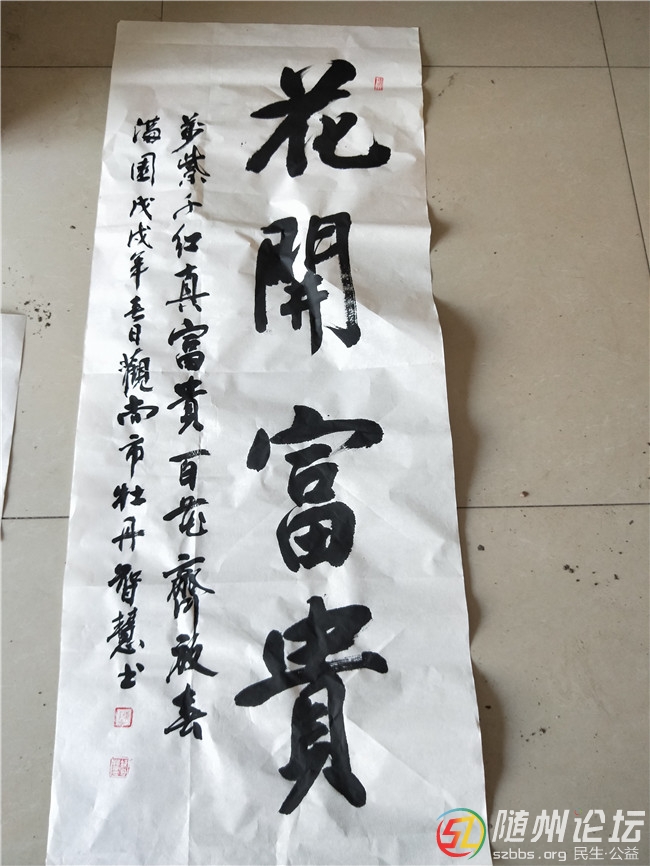 花開富貴
萬紫千红真富貴百花齊放春
满園戊戌年春日觀尚市牡丹智慧书
随州论坛
szbbs.org 民生·公益